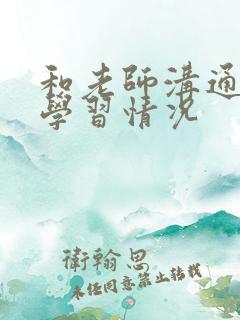 和老師溝通
學習情況
衛翰思
未經同意禁止轉載